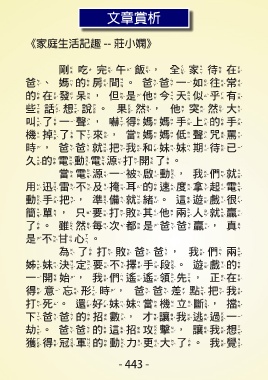 文章賞析
《家庭生活記趣 -- 莊小嫻》
剛吃完午飯，全家待在
爸、媽的房間。爸爸一如往常
的在發呆，但是他今天似乎有
些話想說。果然，他突然大
叫了一聲，嚇得媽媽手上的手
機掉了下來，當媽媽低聲咒罵
時，爸爸就把我和妹妹期待已
久的電動電源打開了。
當電源一被啟動，我們就
用迅雷不及掩耳的速度拿起電
動手把，準備就緒。這遊戲很
簡單，只要打敗其他兩人就贏
了。雖然每次都是爸爸贏，真
是不甘心。
為了打敗爸爸，我們兩
姊妹決定要不擇手段。遊戲的
一開始，我們遙遙領先，正在
得意忘形時，爸爸差點把我
打死。還好妹妹當機立斷，擋
下爸爸的招數，才讓我逃過一
劫。爸爸的這招攻擊，讓我想
獲得冠軍的動力更大了。我覺
- 443 -